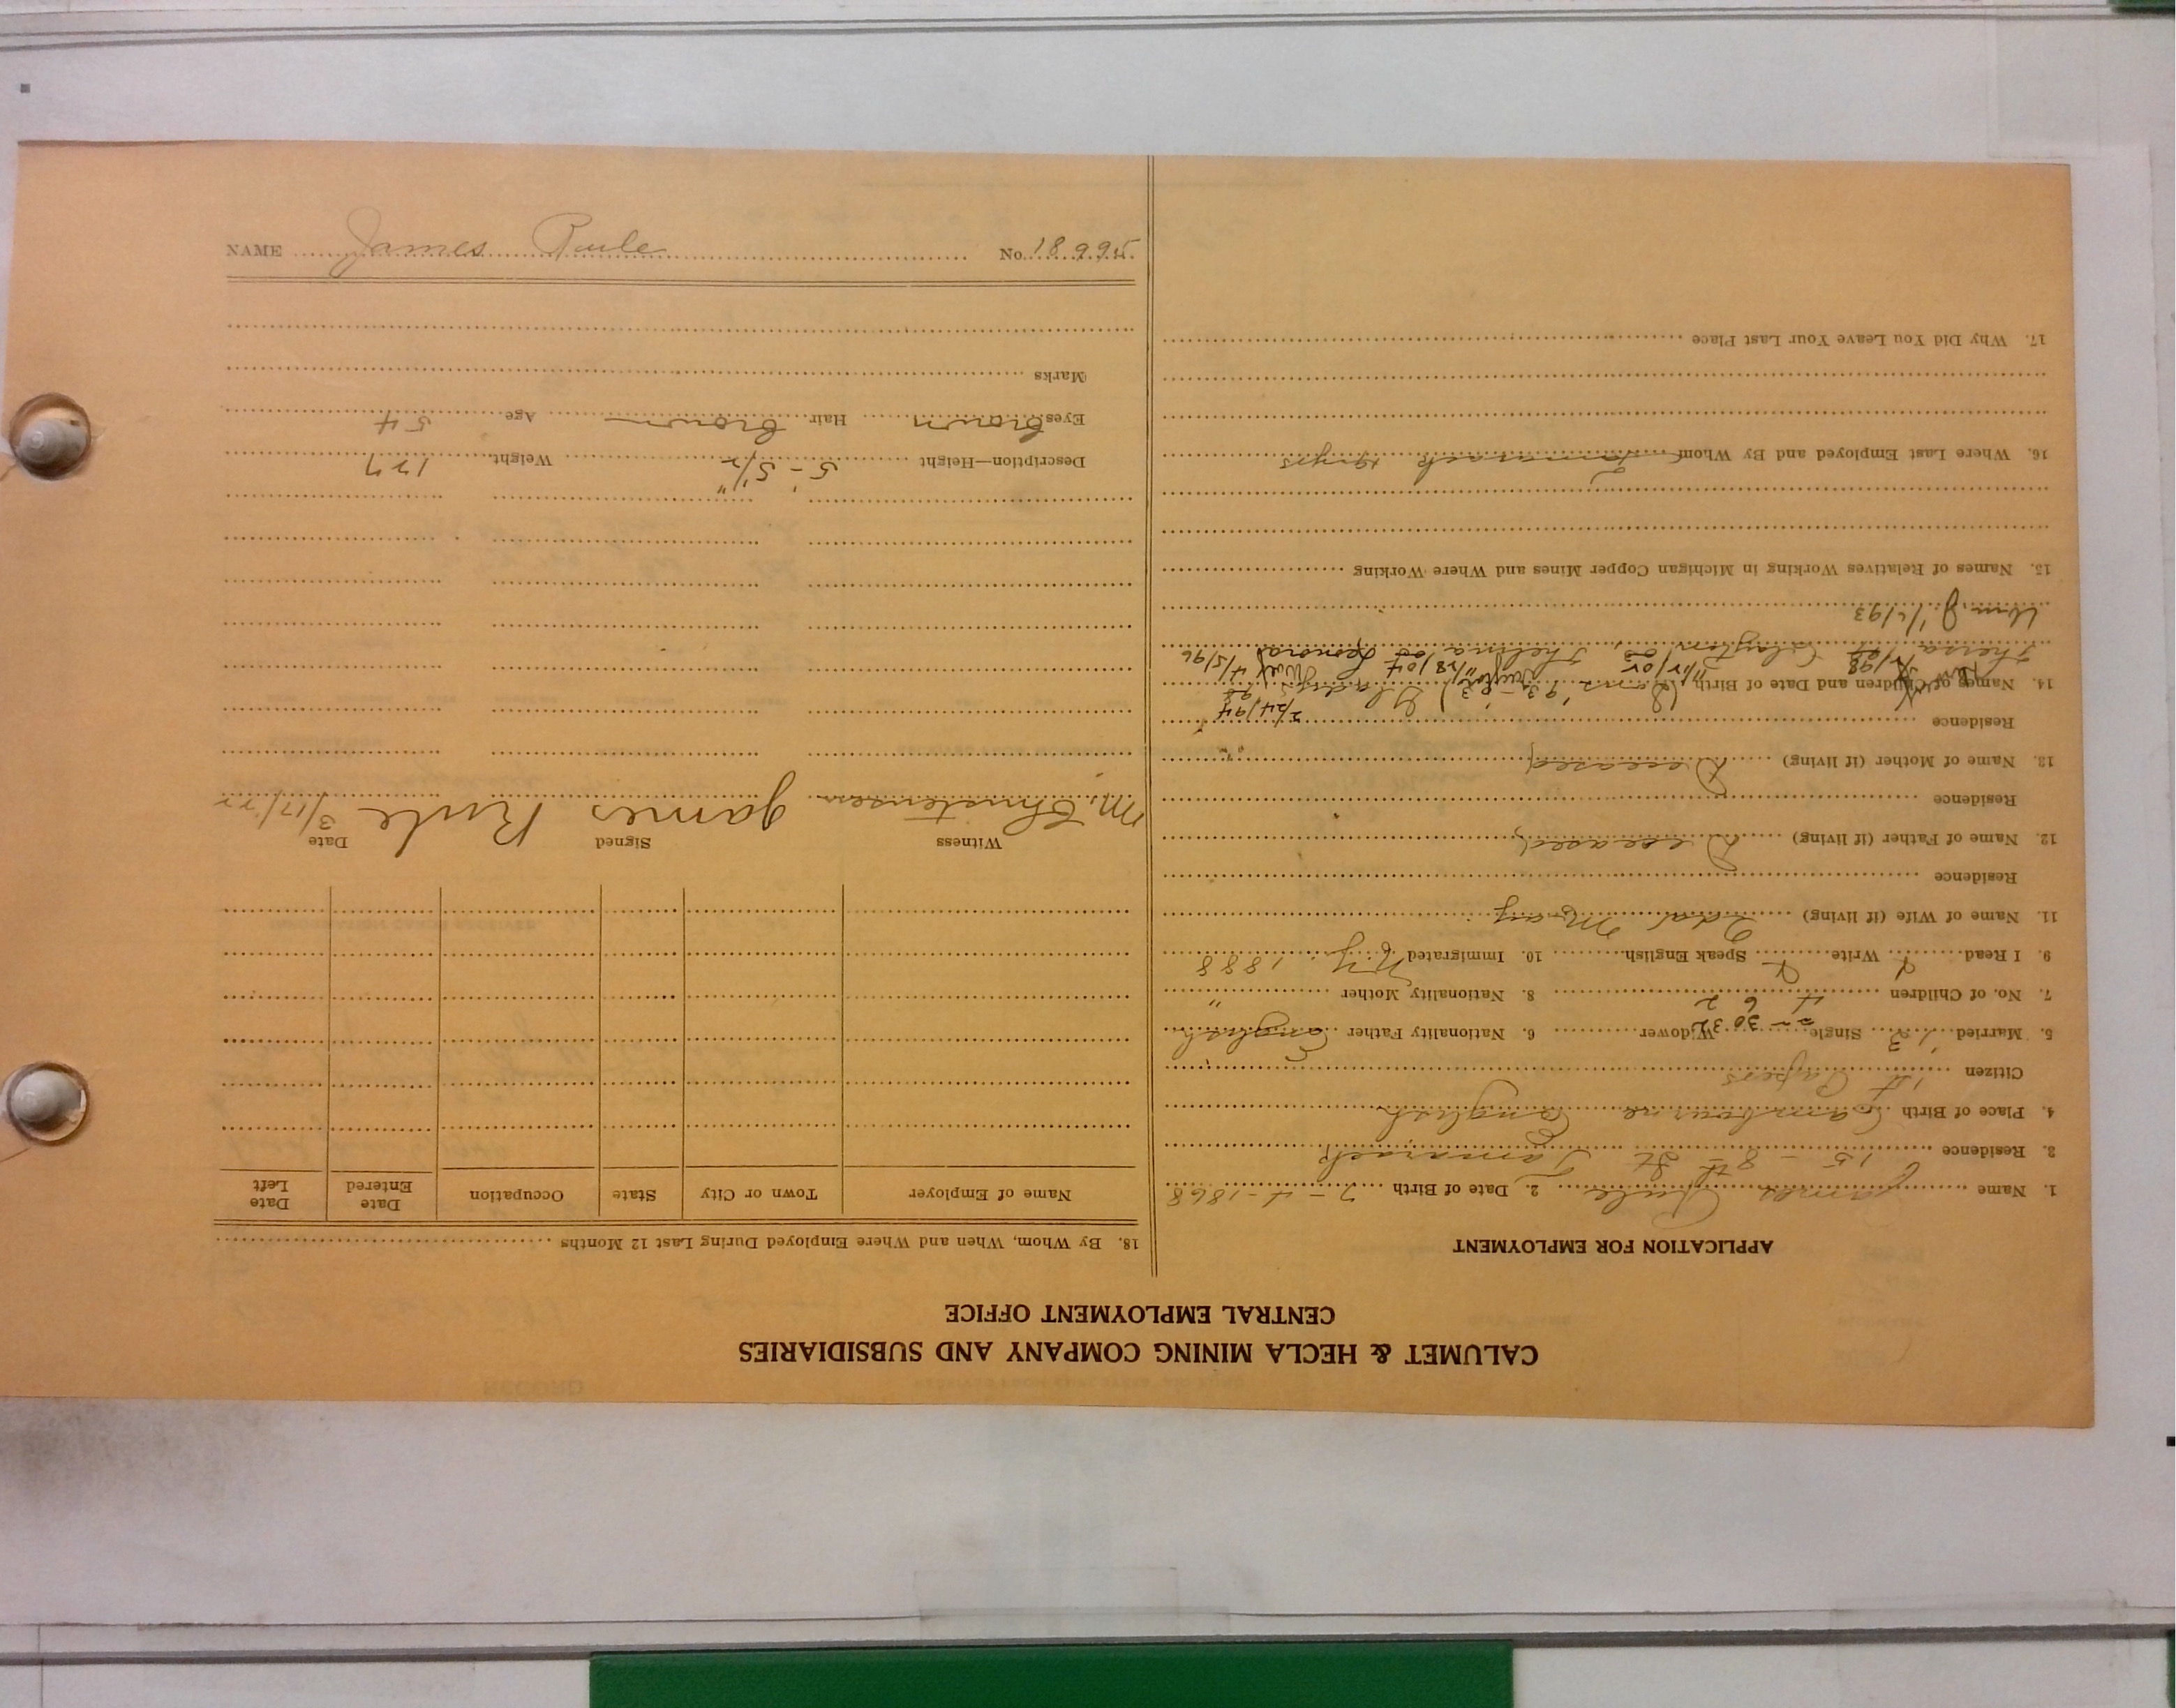 CALUMET & HECLA MINING COMPANY AND SUBSIDIARIES
CENTRAL EMPLOYMENT OFFICE
APPLICATION FOR EMPLOYMENT
1. Name James Rule 2. Date of Birth 7-4-1868
3. Residence 15 - 8th St Tamarack
4. Place of Birth Cambourne English
Citizen 1st Papers
5. Married Single Widower 6. Nationality Father English
7. No. of Children 8. Nationality Mother "
9. I Read Write Speak English 10. Immigrated N.Y. 1888
11. Name of Wife (if living) Ida May
Residence
12. Name of Father (if living) Deceased
Residence
13. Name of Mother (if living) Deceased
Residence
14. Names of Children and Date of Birth
Thelma
Wm. J.
15. Names of Relatives Working in Michigan Copper Mines and Where Working
16. Where Last Employed and By Whom Tamarack yrs
17. Why Did You Leave Your Last Place
18. By Whom, When and Where Employed During Last 12 Months
Name of Employer Town or City State Occupation Date Entered Date Left
Witness Signed Date
M. Christensen James Rule 3/17/22
Description—Height 5'-5 1/2" Weight 127
Eyes brown Hair brown Age 54
Marks
NAME James Rule No. 18995